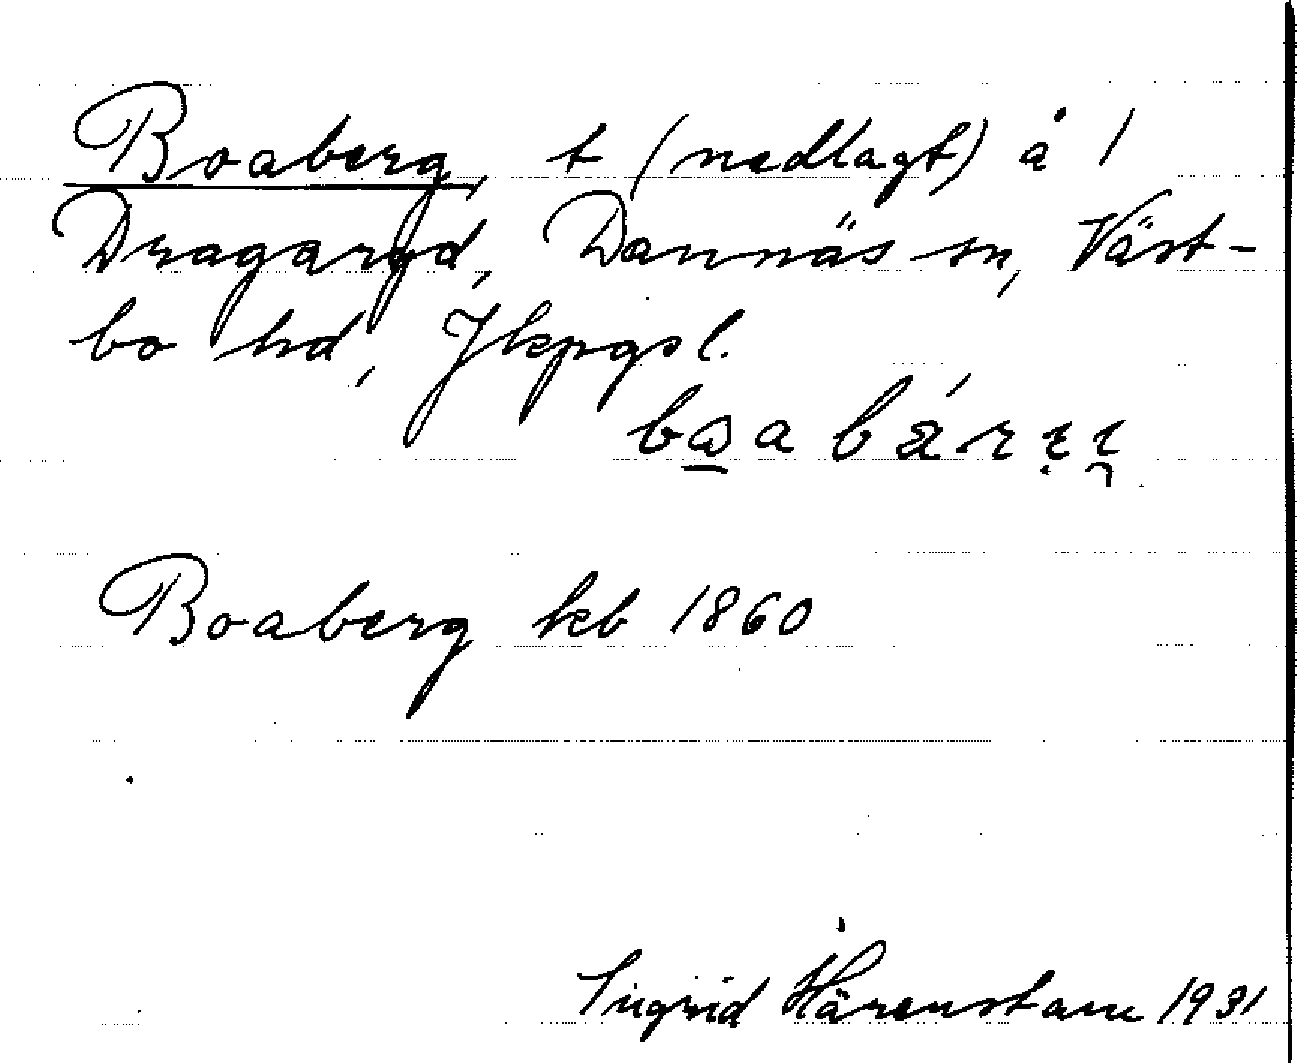 Boaberg, t (nedlagt) å /
Dragaryd, Dannäs sn, Väst-
bo hd, Jkpgs l.
Boaberg kb 1860
Ingrid Härenstam 1931